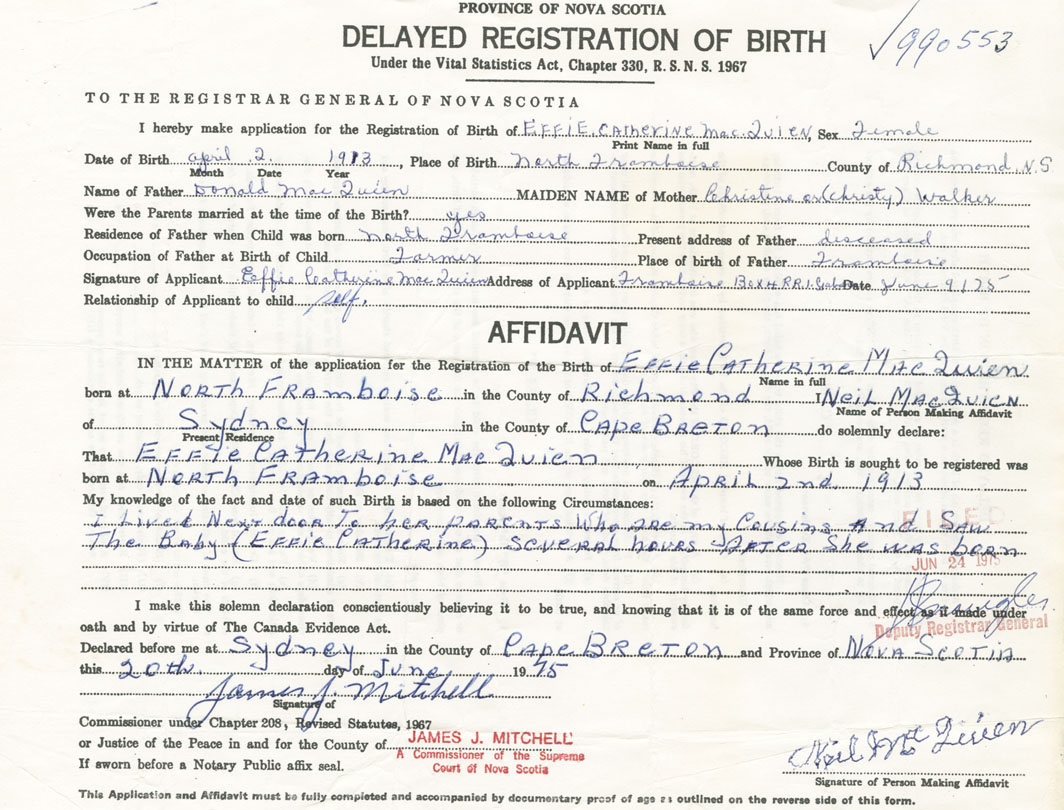 PROVINCE OF NOVA SCOTIA
DELAYED REGISTRATION OF BIRTH
Under the Vital Statistics Act, Chapter 330, R. S. N. S. 1967
✓990553
TO THE REGISTRAR GENERAL OF NOVA SCOTIA
I hereby make application for the Registration of Birth of EFFIE Catherine Mac Quien, Sex Female
Print Name in full
Date of Birth April 2. 1913, Place of Birth North Framboise County of Richmond, N.S
Month Date Year
Name of Father Donald Mac Quien MAIDEN NAME of Mother Christine or (Christy) Walker
Were the Parents married at the time of the Birth? yes
Residence of Father when Child was born North Framboise Present address of Father desceased
Occupation of Father at Birth of Child Farmer Place of birth of Father Framboise
Signature of Applicant Effie Catherine Mac Quien Address of Applicant Framboise Box 4 R.R.1. Date June 9/75
Relationship of Applicant to child self.
AFFIDAVIT
IN THE MATTER of the application for the Registration of the Birth of Effie Catherine Mac Quien
Name in full
born at North Framboise in the County of Richmond I Neil MacQuien
Name of Person Making Affidavit
of Sydney in the County of Cape Breton do solemnly declare:
Present Residence
That Effie Catherine Mac Quien Whose Birth is sought to be registered was
born at North Framboise on April 2nd 1913
My knowledge of the fact and date of such Birth is based on the following Circumstances:
I Lived Next door To her parents Who are my Cousins And Saw
The Baby (Effie Catherine) several hours after She was born
FILED
JUN 24 1975
I make this solemn declaration conscientiously believing it to be true, and knowing that it is of the same force and effect as if made under
oath and by virtue of The Canada Evidence Act.
Deputy Registrar General
Declared before me at Sydney in the County of Cape Breton and Province of Nova Scotia
this 20th day of June 1975
James J. Mitchell
Signature of
Commissioner under Chapter 208, Revised Statutes, 1967
or Justice of the Peace in and for the County of JAMES J. MITCHELL
A Commissioner of the Supreme
Court of Nova Scotia
If sworn before a Notary Public affix seal.
Neil Mc Quien
Signature of Person Making Affidavit
This Application and Affidavit must be fully completed and accompanied by documentary proof of age as outlined on the reverse side of this form.